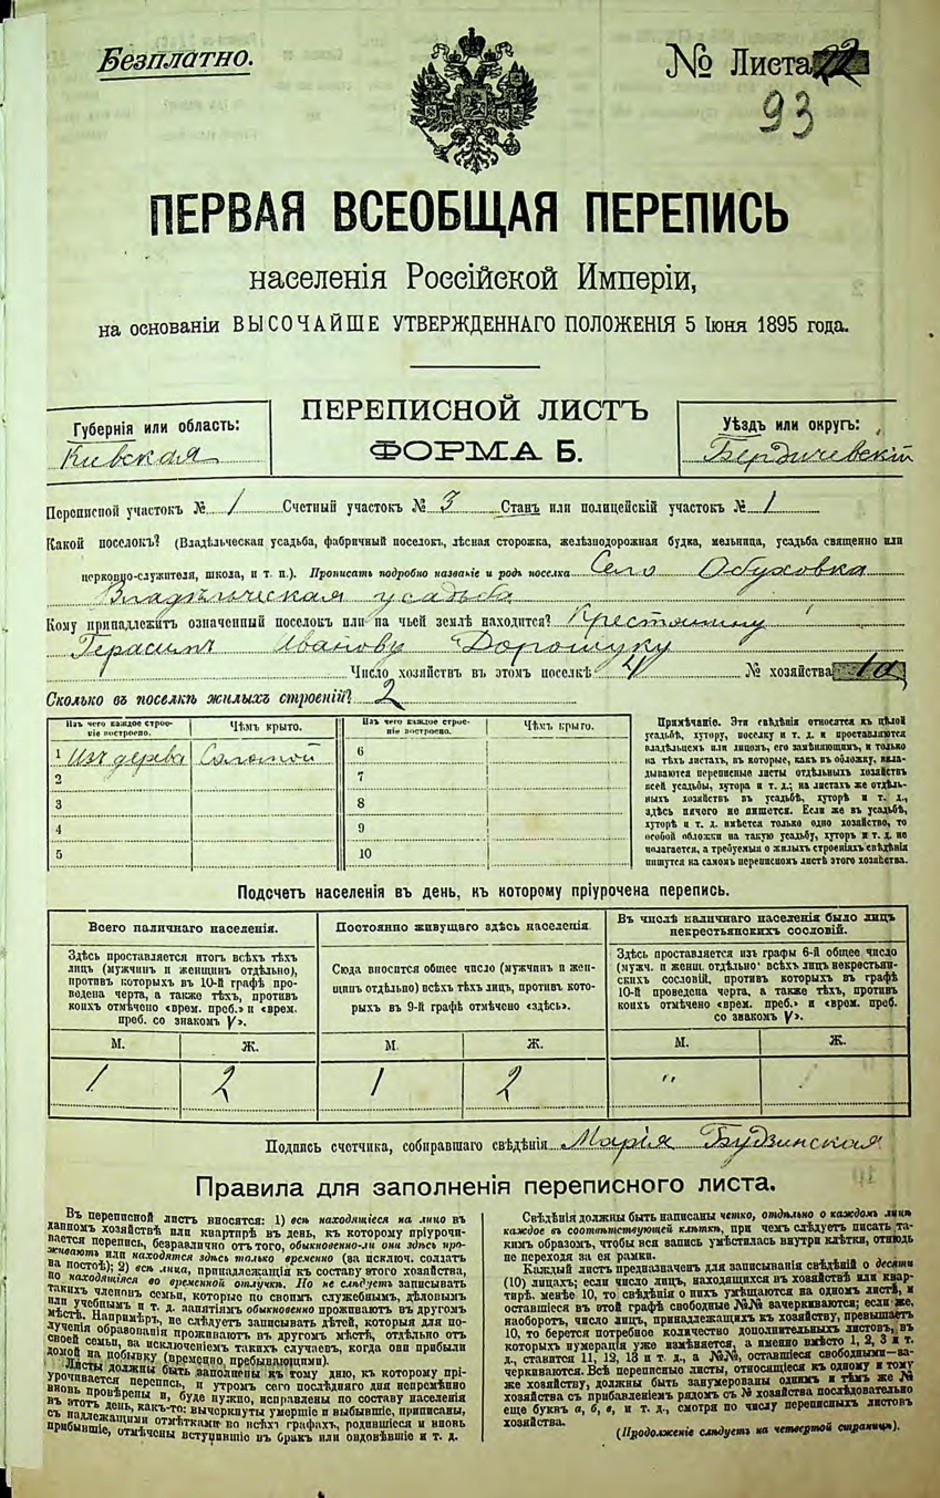 Безплатно.
№ Листа 22
93
ПЕРВАЯ ВСЕОБЩАЯ ПЕРЕПИСЬ
населенія Россійской Имперіи,
на основаніи ВЫСОЧАЙШЕ УТВЕРЖДЕННАГО ПОЛОЖЕНІЯ 5 Іюня 1895 года.
Губернія или область:
Кивская
ПЕРЕПИСНОЙ ЛИСТЪ
ФОРМА Б.
Уѣздъ или округъ:
Бердичевскій
Переписной участокъ № 1 Счетный участокъ № 3 Станъ или полицейскій участокъ № 1
Какой поселокъ? (Владѣльческая усадьба, фабричный поселокъ, лѣсная сторожка, желѣзнодорожная будка, мельница, усадьба священно или
церковно-служителя, школа, и т. п.). Прописать подробно названіе и родъ поселка Село Обуховка
Владѣльческая усадьба
Кому принадлежитъ означенный поселокъ или на чьей землѣ находится? Крестянину
Герасимъ Иванову Дорошуку
Число хозяйствъ въ этомъ поселкѣ 4 № хозяйства 1а
Сколько въ поселкѣ жилыхъ строеній? 2
Изъ чего каждое строе-
ніе построено.
Чѣмъ крыто.
Изъ чего каждое строе-
ніе построено.
Чѣмъ крыто.
1 Изъ дерева Соломой 6
2 7
3 8
4 9
5 10
Примѣчаніе. Эти свѣдѣнія относятся къ цѣлой
усадьбѣ, хутору, поселку и т. д. и проставляются
владѣльцемъ или лицомъ, его замѣняющимъ, и только
на тѣхъ листахъ, въ которые, какъ въ обложку, вкла-
дываются переписные листы отдѣльныхъ хозяйствъ
всей усадьбы, хутора и т. д.; на листахъ же отдѣль-
ныхъ хозяйствъ въ усадьбѣ, хуторѣ и т. д.,
здѣсь ничего не пишется. Если же въ усадьбѣ,
хуторѣ и т. д. имѣется только одно хозяйство, то
особой обложки на такую усадьбу, хуторъ и т. д. не
полагается, а требуемыя о жилыхъ строеніяхъ свѣдѣнія
пишутся на самомъ переписномъ листѣ этого хозяйства.
Подсчетъ населенія въ день, къ которому пріурочена перепись.
Всего наличнаго населенія.
Здѣсь проставляется итогъ всѣхъ тѣхъ
лицъ (мужчинъ и женщинъ отдѣльно),
противъ которыхъ въ 10-й графѣ про-
ведена черта, а также тѣхъ, противъ
коихъ отмѣчено «врем. преб.» и «врем.
преб. со знакомъ V».
Постоянно живущаго здѣсь населенія
Сюда вносится общее число (мужчинъ и жен-
щинъ отдѣльно) всѣхъ тѣхъ лицъ, противъ кото-
рыхъ въ 9-й графѣ отмѣчено «здѣсь».
Въ числѣ наличнаго населенія было лицъ
некрестьянскихъ сословій.
Здѣсь проставляется изъ графы 6-й общее число
(мужч. и женщ. отдѣльно) всѣхъ лицъ некрестьян-
скихъ сословій, противъ которыхъ въ графѣ
10-й проведена черта, а также тѣхъ, противъ
коихъ отмѣчено «врем. преб.» и «врем. преб.
со знакомъ V».
М. Ж. М. Ж. М. Ж.
1 2 1 2 "
Подпись счетчика, собиравшаго свѣдѣнія Марія Будзинская
Правила для заполненія переписного листа.
Въ переписной листъ вносятся: 1) всѣ находящіеся на лицо въ
данномъ хозяйствѣ или квартирѣ въ день, къ которому пріурочи-
вается перепись, безразлично отъ того, обыкновенно-ли они здѣсь про-
живаютъ или находятся здѣсь только временно (за исключ. солдатъ
на постоѣ); 2) всѣ лица, принадлежащія къ составу этого хозяйства,
но находящіяся во временной отлучкѣ. Но не слѣдуетъ записывать
такихъ членовъ семьи, которые по своимъ служебнымъ, дѣловымъ
или учебнымъ и т. д. занятіямъ обыкновенно проживаютъ въ другомъ
мѣстѣ. Напримѣръ, не слѣдуетъ записывать дѣтей, которыя для по-
лученія образованія проживаютъ въ другомъ мѣстѣ, отдѣльно отъ
своей семьи, за исключеніемъ такихъ случаевъ, когда они прибыли
домой на побывку (временно пребывающими).
Листы должны быть заполнены къ тому дню, къ которому прі-
урочивается перепись, и утромъ сего послѣдняго дня непремѣнно
вновь провѣрены и, буде нужно, исправлены по составу населенія
въ этотъ день, какъ-то: вычеркнуты умершіе и выбывшіе, приписаны,
съ надлежащими отмѣтками во всѣхъ графахъ, родившіеся и вновь
прибывшіе, отмѣчены вступившіе въ бракъ или овдовѣвшіе и т. д.
Свѣдѣнія должны быть написаны четко, отдѣльно о каждомъ лицѣ
каждое въ соотвѣтствующей клѣткѣ, при чемъ слѣдуетъ писать та-
кимъ образомъ, чтобы вся запись умѣстилась внутри клѣтки, отнюдь
не переходя за ея рамки.
Каждый листъ предназначенъ для записыванія свѣдѣній о десяти
(10) лицахъ; если число лицъ, находящихся въ хозяйствѣ или квар-
тирѣ, менѣе 10, то свѣдѣнія о нихъ умѣщаются на одномъ листѣ, и
оставшіеся въ этой графѣ свободные №№ зачеркиваются; если же,
наоборотъ, число лицъ, принадлежащихъ къ хозяйству, превышаетъ
10, то берется потребное количество дополнительныхъ листовъ, въ
которыхъ нумерація уже измѣняется, а именно вмѣсто 1, 2, 3 и т.
д., ставится 11, 12, 13 и т. д., а №№, оставшіеся свободными—за-
черкиваются. Всѣ переписные листы, относящіеся къ одному и тому
же хозяйству, должны быть занумерованы однимъ и тѣмъ же №
хозяйства съ прибавленіемъ рядомъ съ № хозяйства послѣдовательно
еще буквъ а, б, в, и т. д., смотря по числу переписныхъ листовъ
хозяйства.
(Продолженіе слѣдуетъ на четвертой страницѣ).